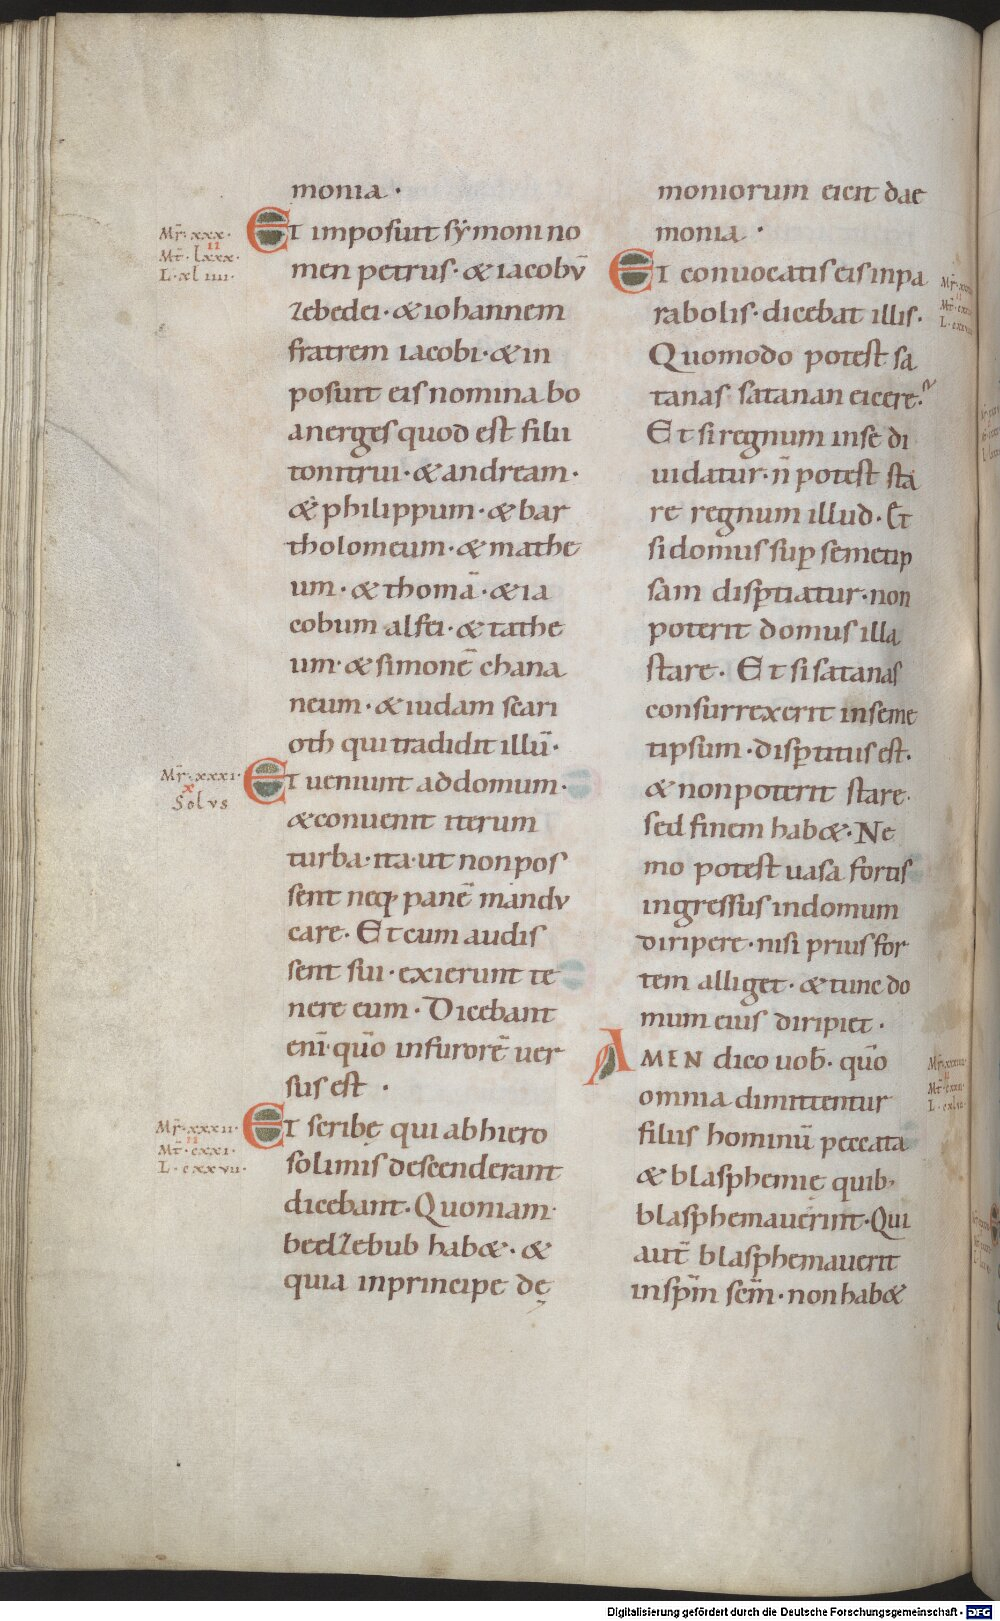 monia ·
Mr̄· xxx·
II
Mt̄· lxxx·
L· xl IIII·
Et imposuit sẏmoni no
men petrus · & iacobū
zebedei · & iohannem
fratrem iacobi · & in
posuit eis nomina bo
anerges quod est filii
tonitrui · & andream ·
& philippum · & bar
tholomeum · & mathe
um · & thomā · & ia
cobum alfei · & tathe
um · & simonē chana
neum · & iudam scari
oth qui tradidit illū ·
Mr̄· xxxI·
x
Solvs
Et ueniunt ad domum ·
& conuenit iterum
turba · ita · ut non pos
sent neq; panē mandu
care · Et cum audis
sent sui · exierunt te
nere eum · Dicebant
enī · quō in furorē uer
sus est ·
Mr̄· xxxII·
II
Mt̄· cxxI·
L· cxxvII·
Et scribę qui ab hiero
solimis descenderant
dicebant · Quoniam
beelzebub hab& · &
quia in principe dę
moniorum eicit dae
monia ·
Et conuocatis eis in pa
rabolis · dicebat illis ·
Quomodo potest sa
tanas satanan eicere ·
Et si regnum in se di
uidatur · n̄ potest sta
re regnum illud · Et
si domus sup̱ semetip
sam disp̱tiatur · non
poterit domus illa
stare · Et si satanas
consurrexerit in seme
tipsum · disp̱titus est ·
& non poterit stare ·
sed finem hab& · Ne
mo potest uasa fortis
ingressus in domum
diripere · nisi prius for
tem alliget · & tunc do
mum eius diripiet ·
AMEN dico uob̄ · quō
omnia dimittentur
filiis hominū peccata
& blasphemię quib;
blasphemauerint · Qui
aut̄ blasphemauerit
in sp̄m sc̄m · non hab&
Digitalisierung gefördert durch die Deutsche Forschungsgemeinschaft · DFG